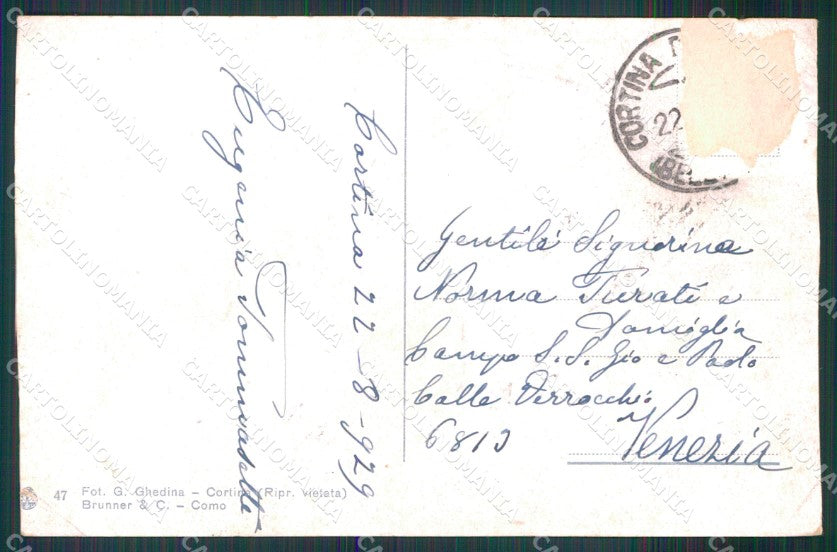 Cortina 22-8-929
Eugenia Tommasella
CORTINA D
22
(BELL
Gentile Signorina
Norma Turati e
Famiglia
Campo S.S. Gio e Paolo
Calle Verrocchio
6813
Venezia
47 Fot. G. Ghedina - Cortina (Ripr. vietata)
Brunner & C. - Como
CARTOLINOMANIA